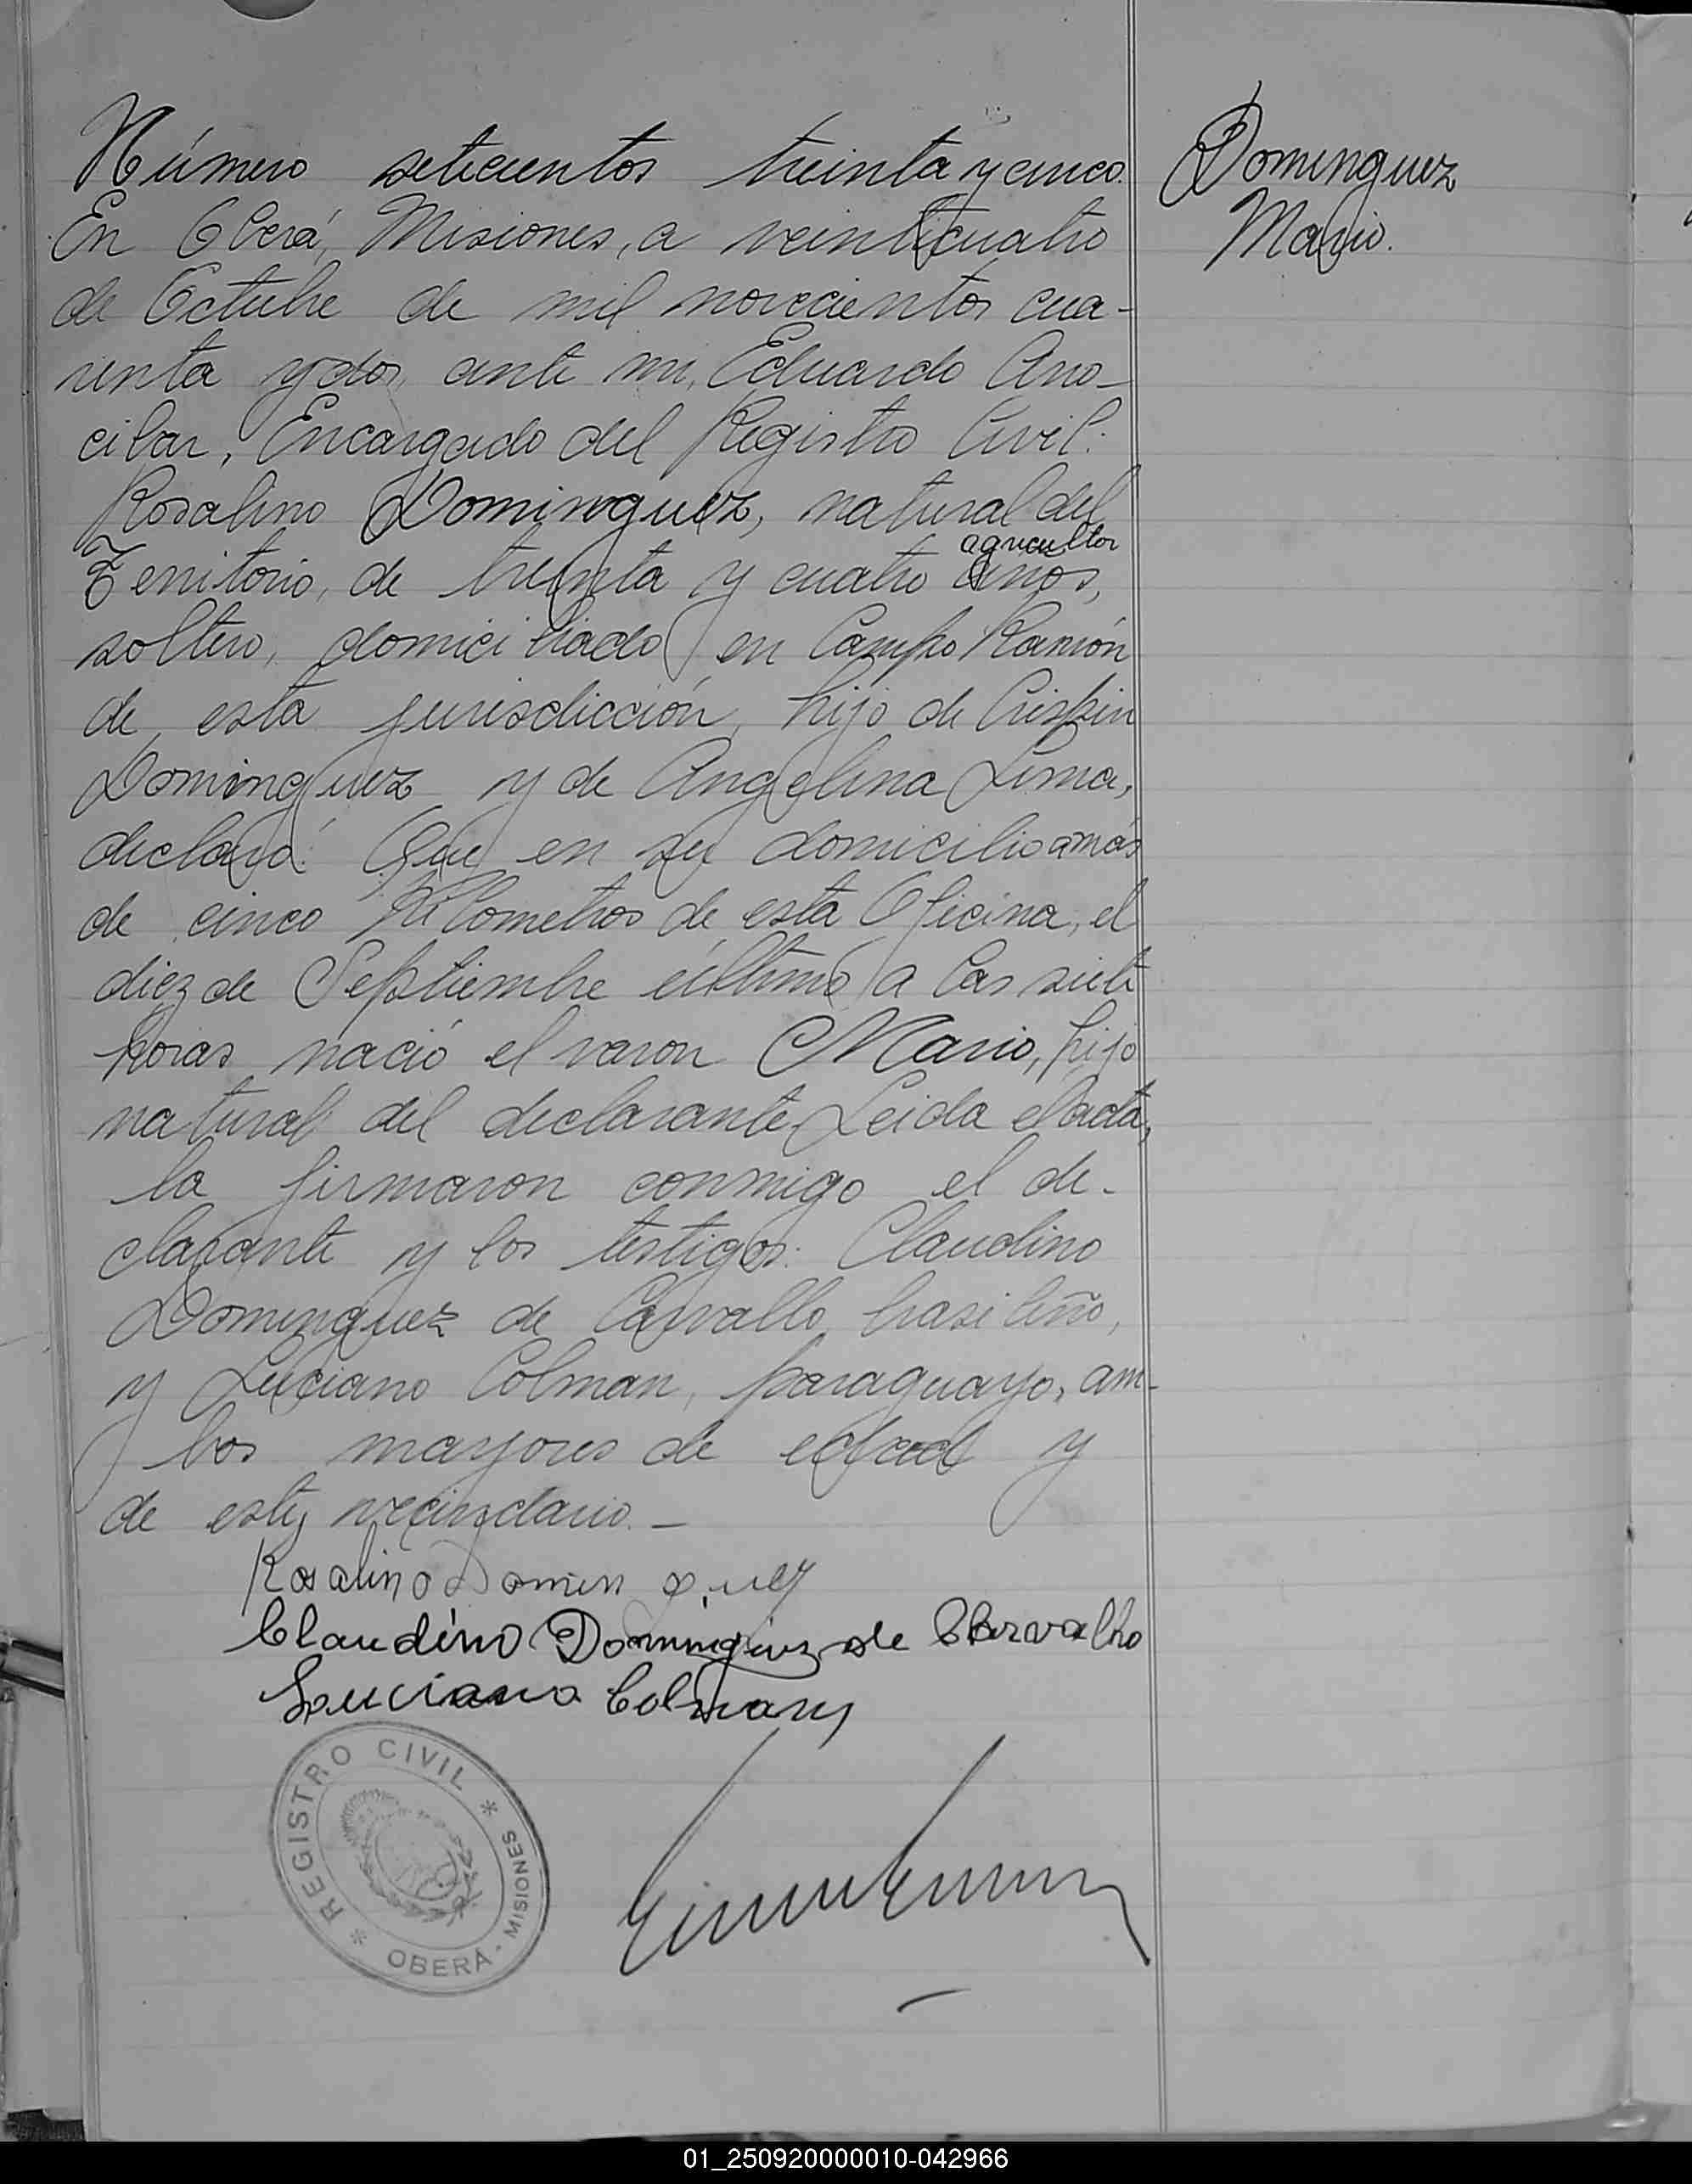 Número seticientos treinta y cinco.
Dominguez
Mario.
En Oberá, Misiones, a veinticuatro
de Octubre de mil novecientos cua-
renta y dos, ante mi, Eduardo Ano-
cibar, Encargado del Registro Civil:
Rosalino Dominguez, natural del
agricultor
Territorio, de treinta y cuatro años,
soltero, domiciliado en Campo Ramón
de esta jurisdicción, hijo de Crispin
Dominguez y de Angelina Lima,
declaró: Que en su domicilio a más
de cinco kilometros de esta Oficina, el
diez de Septiembre último a las siete
horas nació el varon Mario, hijo
natural del declarante. Leida el acta,
la firmaron conmigo el de-
clarante y los testigos: Claudino
Dominguez de Carvallo, brasileño,
y Luciano Colman, paraguayo, am-
bos mayores de edad y
de este vecindario.-
Rosalino Domin guez
Claudino Dominguez de Carvalho
Luciano Colman
REGISTRO CIVIL
OBERÁ - MISIONES
01_250920000010-042966